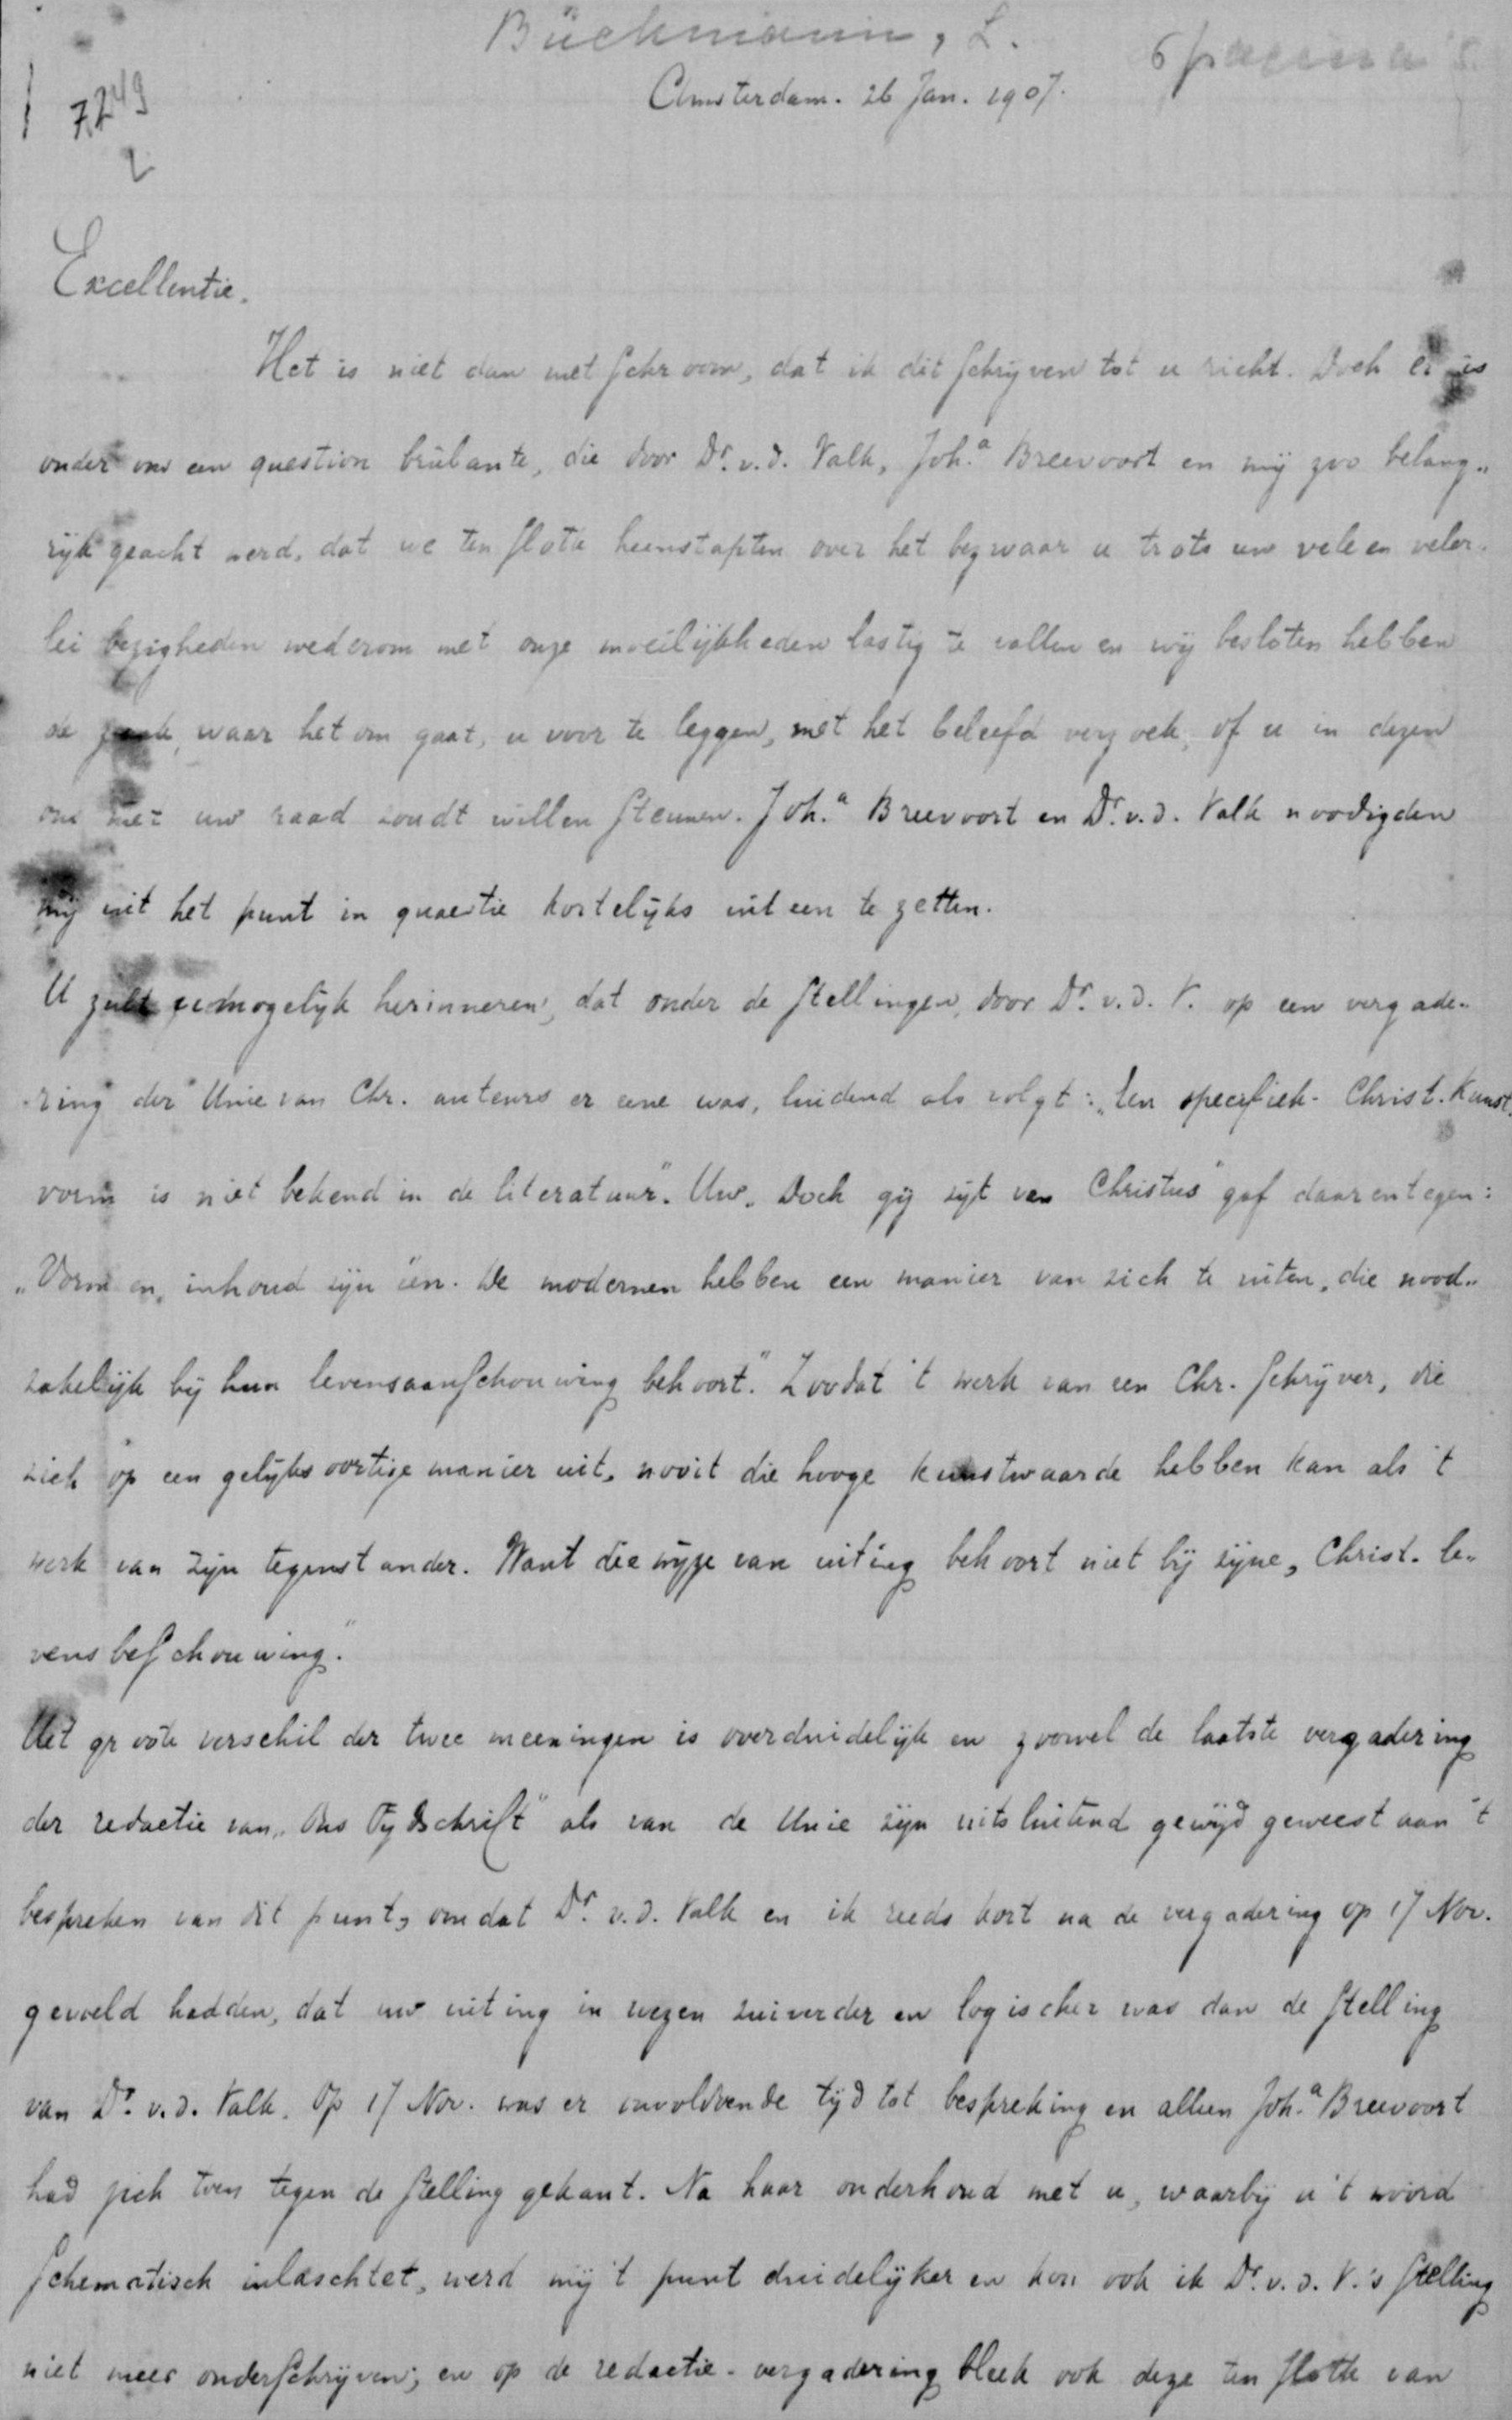 Bückmann, L.
6 pagina's.
Amsterdam. 26 Jan. 1907.
7249
2
Excellentie.
Het is niet dan met schroom, dat ik dit schrijven tot u richt. Doch er is
onder ons een question brûlante, die door Dr. v. d. Valk, Joh.a Breevoort en mij zoo belang„
rijk geacht werd, dat we ten slotte heenstapten over het bezwaar u trots uw vele en veler„
lei bezigheden wederom met onze moeilijkheden lastig te vallen en wij besloten hebben
de zaak, waar het om gaat, u voor te leggen, met het beleefd verzoek, of u in dezen
ons met uw raad zoudt willen steunen. Joh.a Breevoort en Dr. v. d. Valk noodigden
mij uit het punt in quaestie kortelijks uiteen te zetten.
U zult u mogelijk herinneren, dat onder de stellingen, door Dr. v. d. V. op een vergade„
ring der Unie van Chr. auteurs er eene was, luidend als volgt: „Een specifiek-Christ. Kunst„
vorm is niet bekend in de literatuur". Uw „Doch gij zijt van Christus" gaf daarentegen:
„Vorm en inhoud zijn één. De modernen hebben een manier van zich te uiten, die nood„
zakelijk bij hun levensaanschouwing behoort." Zoodat 't werk van een Chr. schrijver, die
zich op een gelijksoortige manier uit, nooit die hooge kunstwaarde hebben kan als 't
werk van zijn tegenstander. Want die wijze van uiting behoort niet bij zijne „Christ. le„
vensbeschouwing."
Het groote verschil der twee meeningen is overduidelijk en zoowel de laatste vergadering
der redactie van „Ons Tijdschrift" als van de Unie zijn uitsluitend gewijd geweest aan 't
bespreken van dit punt, omdat Dr. v. d. Valk en ik reeds kort na de vergadering op 17 Nov.
gevoeld hadden, dat uw uiting in wezen zuiverder en logischer was dan de stelling
van Dr. v. d. Valk. Op 17 Nov. was er onvoldoende tijd tot bespreking en alleen Joh.a Breevoort
had zich toen tegen de stelling gekant. Na haar onderhoud met u, waarbij u 't woord
schematisch inlaschtet, werd mij 't punt duidelijker en kon ook ik Dr. v. d. V.'s stelling
niet meer onderschrijven; en op de redactie-vergadering bleek ook deze ten slotte van